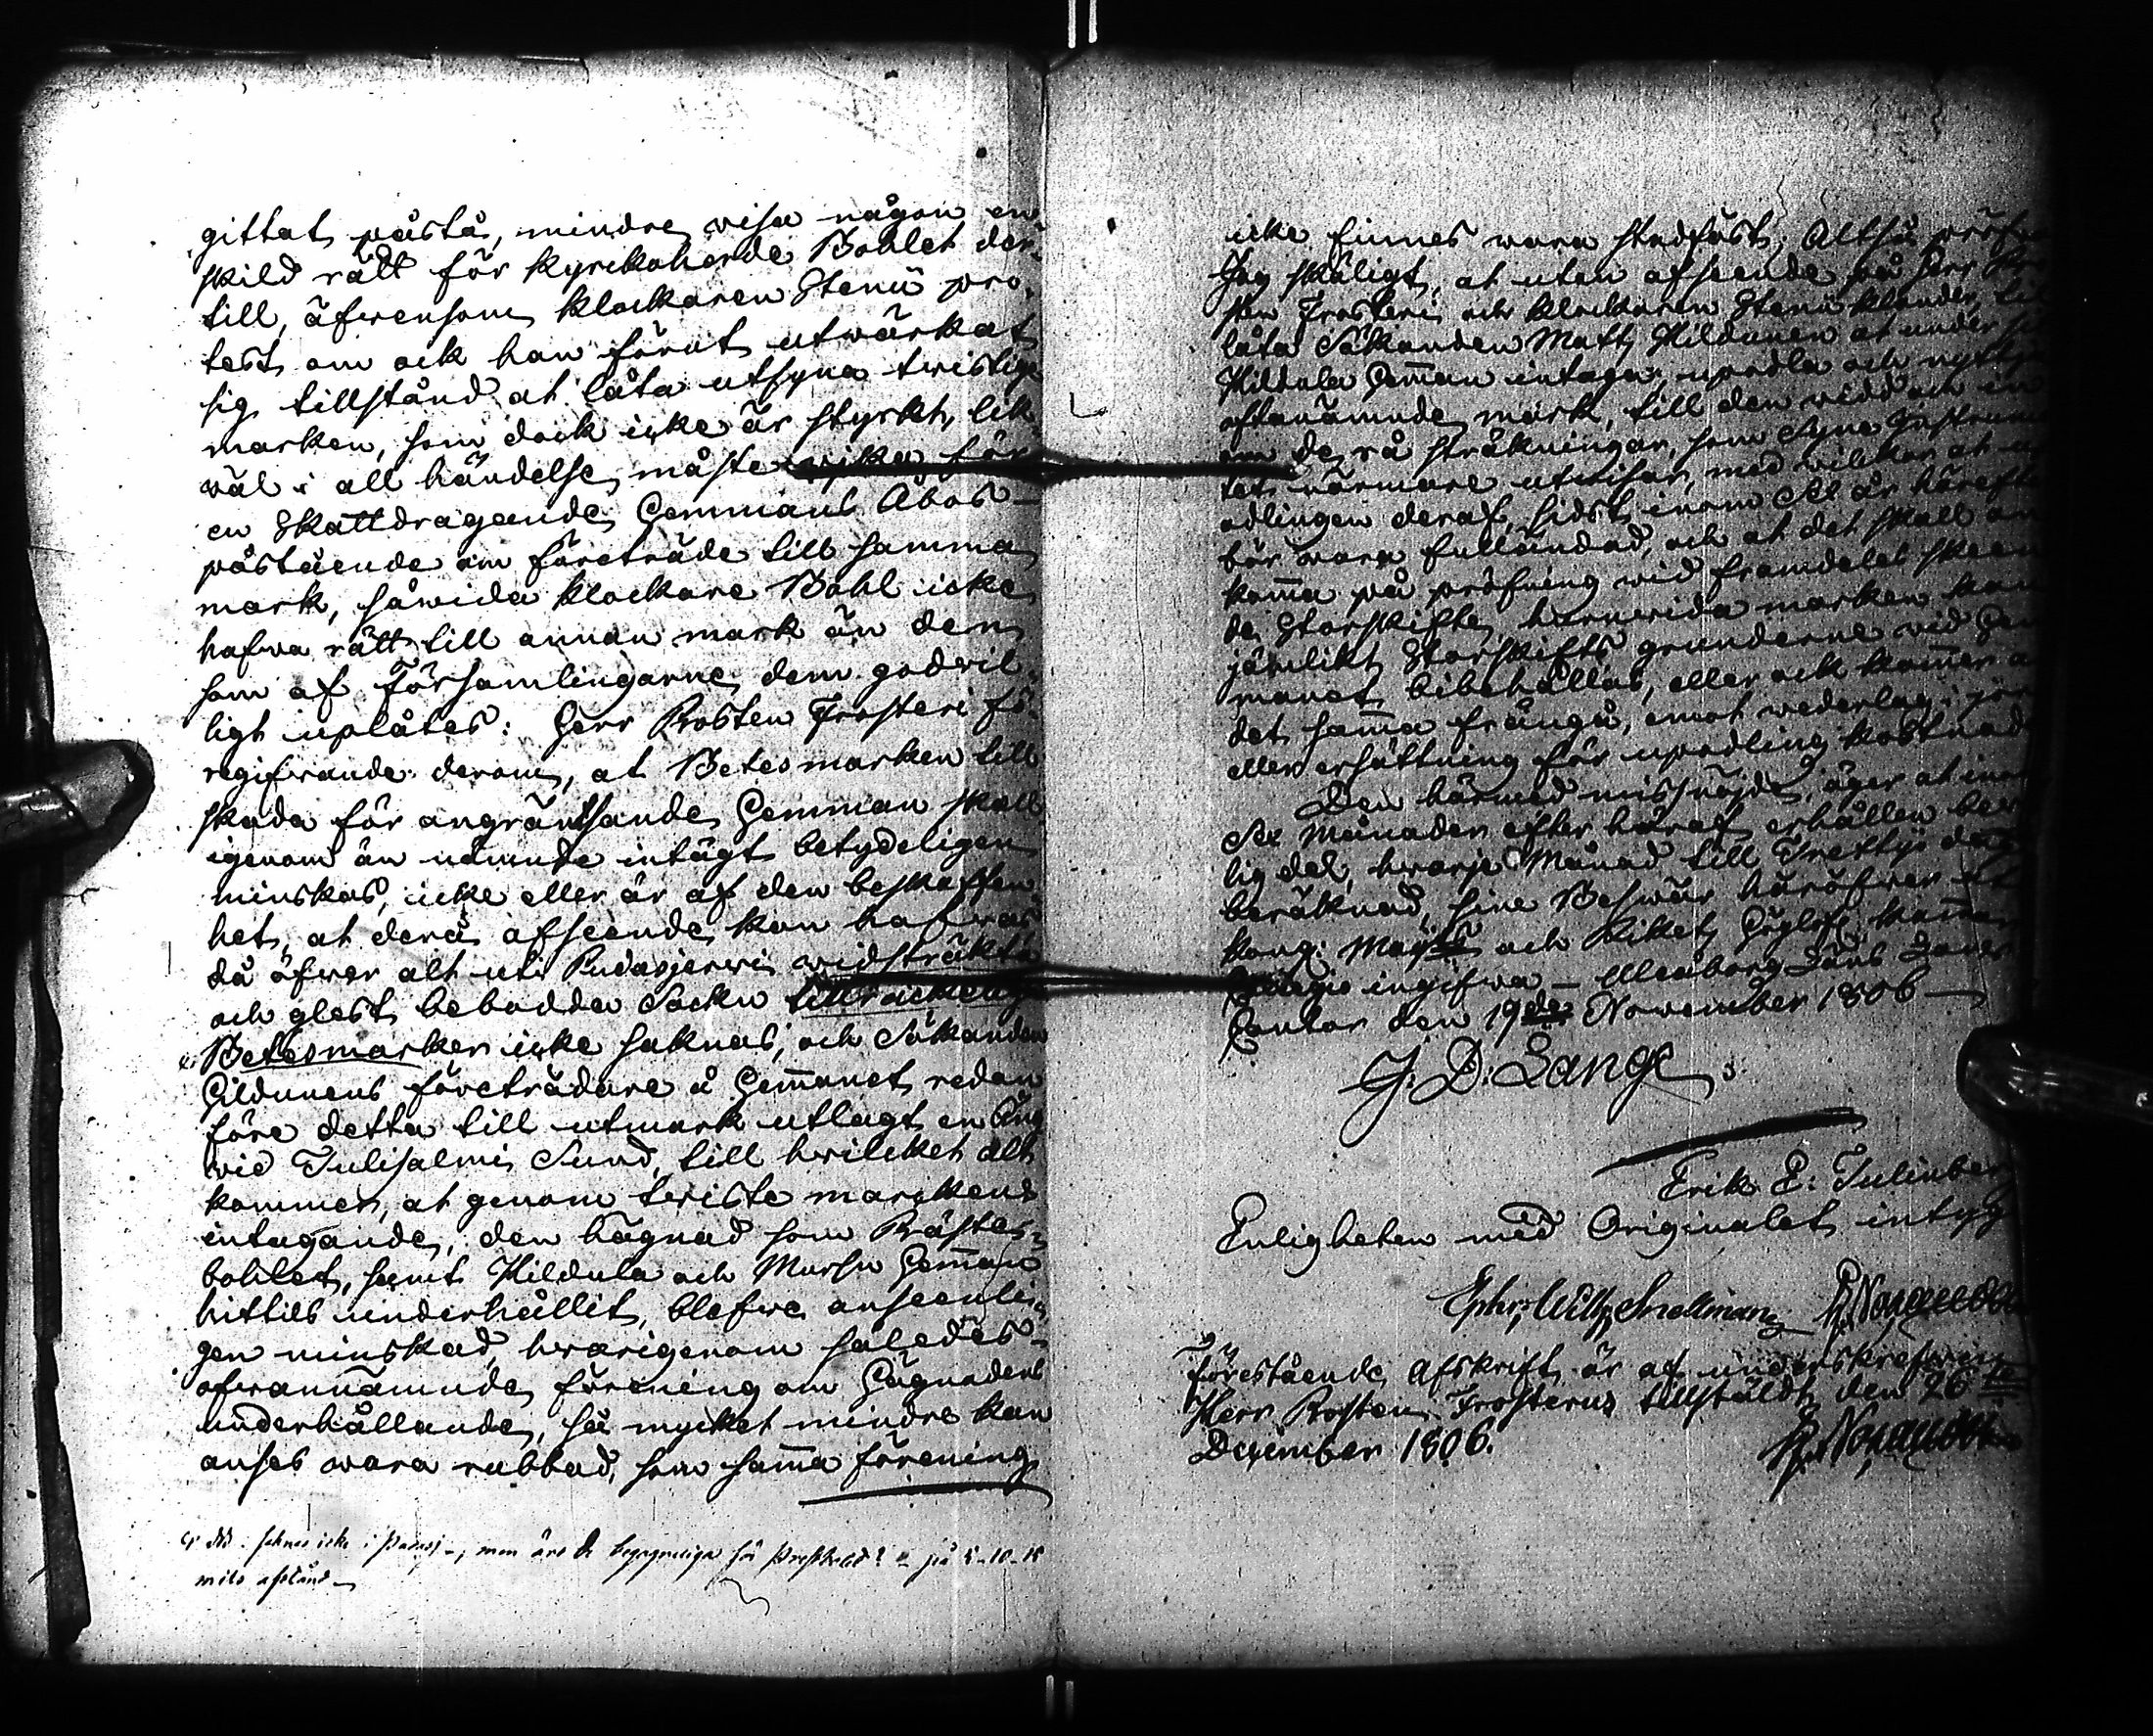 gittat påstå, mindre visa någon en
skild rätt för Kyrckoherde Bohlet der¬
till, äfvensom Klockaren Stenii pro¬
test om ock han förut utwärkat
sig tillstånd at låta utsyna twistige
marken, som dock icke är styrkt, lik
wäl i all händelse måste wika för
en Skattdragande Hemmans Åbos
påstående om företräde till samma
mark, såwida Klockare Bohl icke
hafwa rätt till annan mark än den
som af Församlingarne dem godwil¬
ligt uplåtes: Herr Prosten Frosteri fö¬
regifwande derom, at Betesmarken till
skada för angräntsande Hemman skall
igenom än nämnde intägt betydeligen
minskas, icke eller är af den beskaffen
het, at derå afseende kan hafwas
då öfwer alt uti Pudasjerwi widsträkta
och glest bebodda Sockn tillräckelige
Betesmarker icke saknas, och Sökanden
Hildunens företrädare å Hemanet redan
före detta till utmark utlagt en Äng
wid Tulisalmi Sund, till hwilcket alt
kommer, at genom twiste marckens
intagande, den hägnad som Prästes¬
bohlet, samt Hildula och Mursu Heman
hittils underhållit, blefwe anseenli¬
gen minskad, hwarigenom således
ofwannämnde förening om Hägnadens
underhållande, så mycket mindre kan
anses wara rubbad, som sama förening
saknas icke i Pudasj-, men äro de begagneliga för Prestbolet? på 5-10-15
mils afstånd
icke finnes wara stadfäst; Altså pröfwar
Jag skäligt, at utan afseende på Herr Pro
sten Frosteri och Klockaren Stenii klander, til
låta Sökanden Matts Hildunen at under sit
Hildula Heman intaga, upodla och nyttja
oftanämnde mark, till den widd och in
om de rå sträkningar, som Syne Instrumen
tet närmare utwisar, med wilkor at up
odlingen deraf sidst inom Sex år härefter
bör wara fulländad, och at det skall an
komma på pröfning wid framdeles skeen
de Storskifte, huruwida marken kan
jämlikt Storskifts grunderne wid Hem
manet bibehållas, eller ock kommer at
det samma frångå, emot wederlag i jord
eller ersättning för upodlings kostnad
Den härmed missnöjde, äger at inom
Sex Månader efter häraf erhållen ber
lig del, hwarje Månad till Trettijo dagar
beräknad, sine Beswär häröfwer uti
Kongl: Majts och Rikets Höglofl: Kammar
Collegio ingifwa - Uleåborg Läns Lands
Contor den 19de November 1806
J: D: Lange
Erik E: Tulinberg
Enligheten med Originalet intyga
Ephr: Wilh: Snellman
Förestående Afskrift är af underskrefwen
Herr Prosten Frosterus tillstäldt den 26te
December 1806.